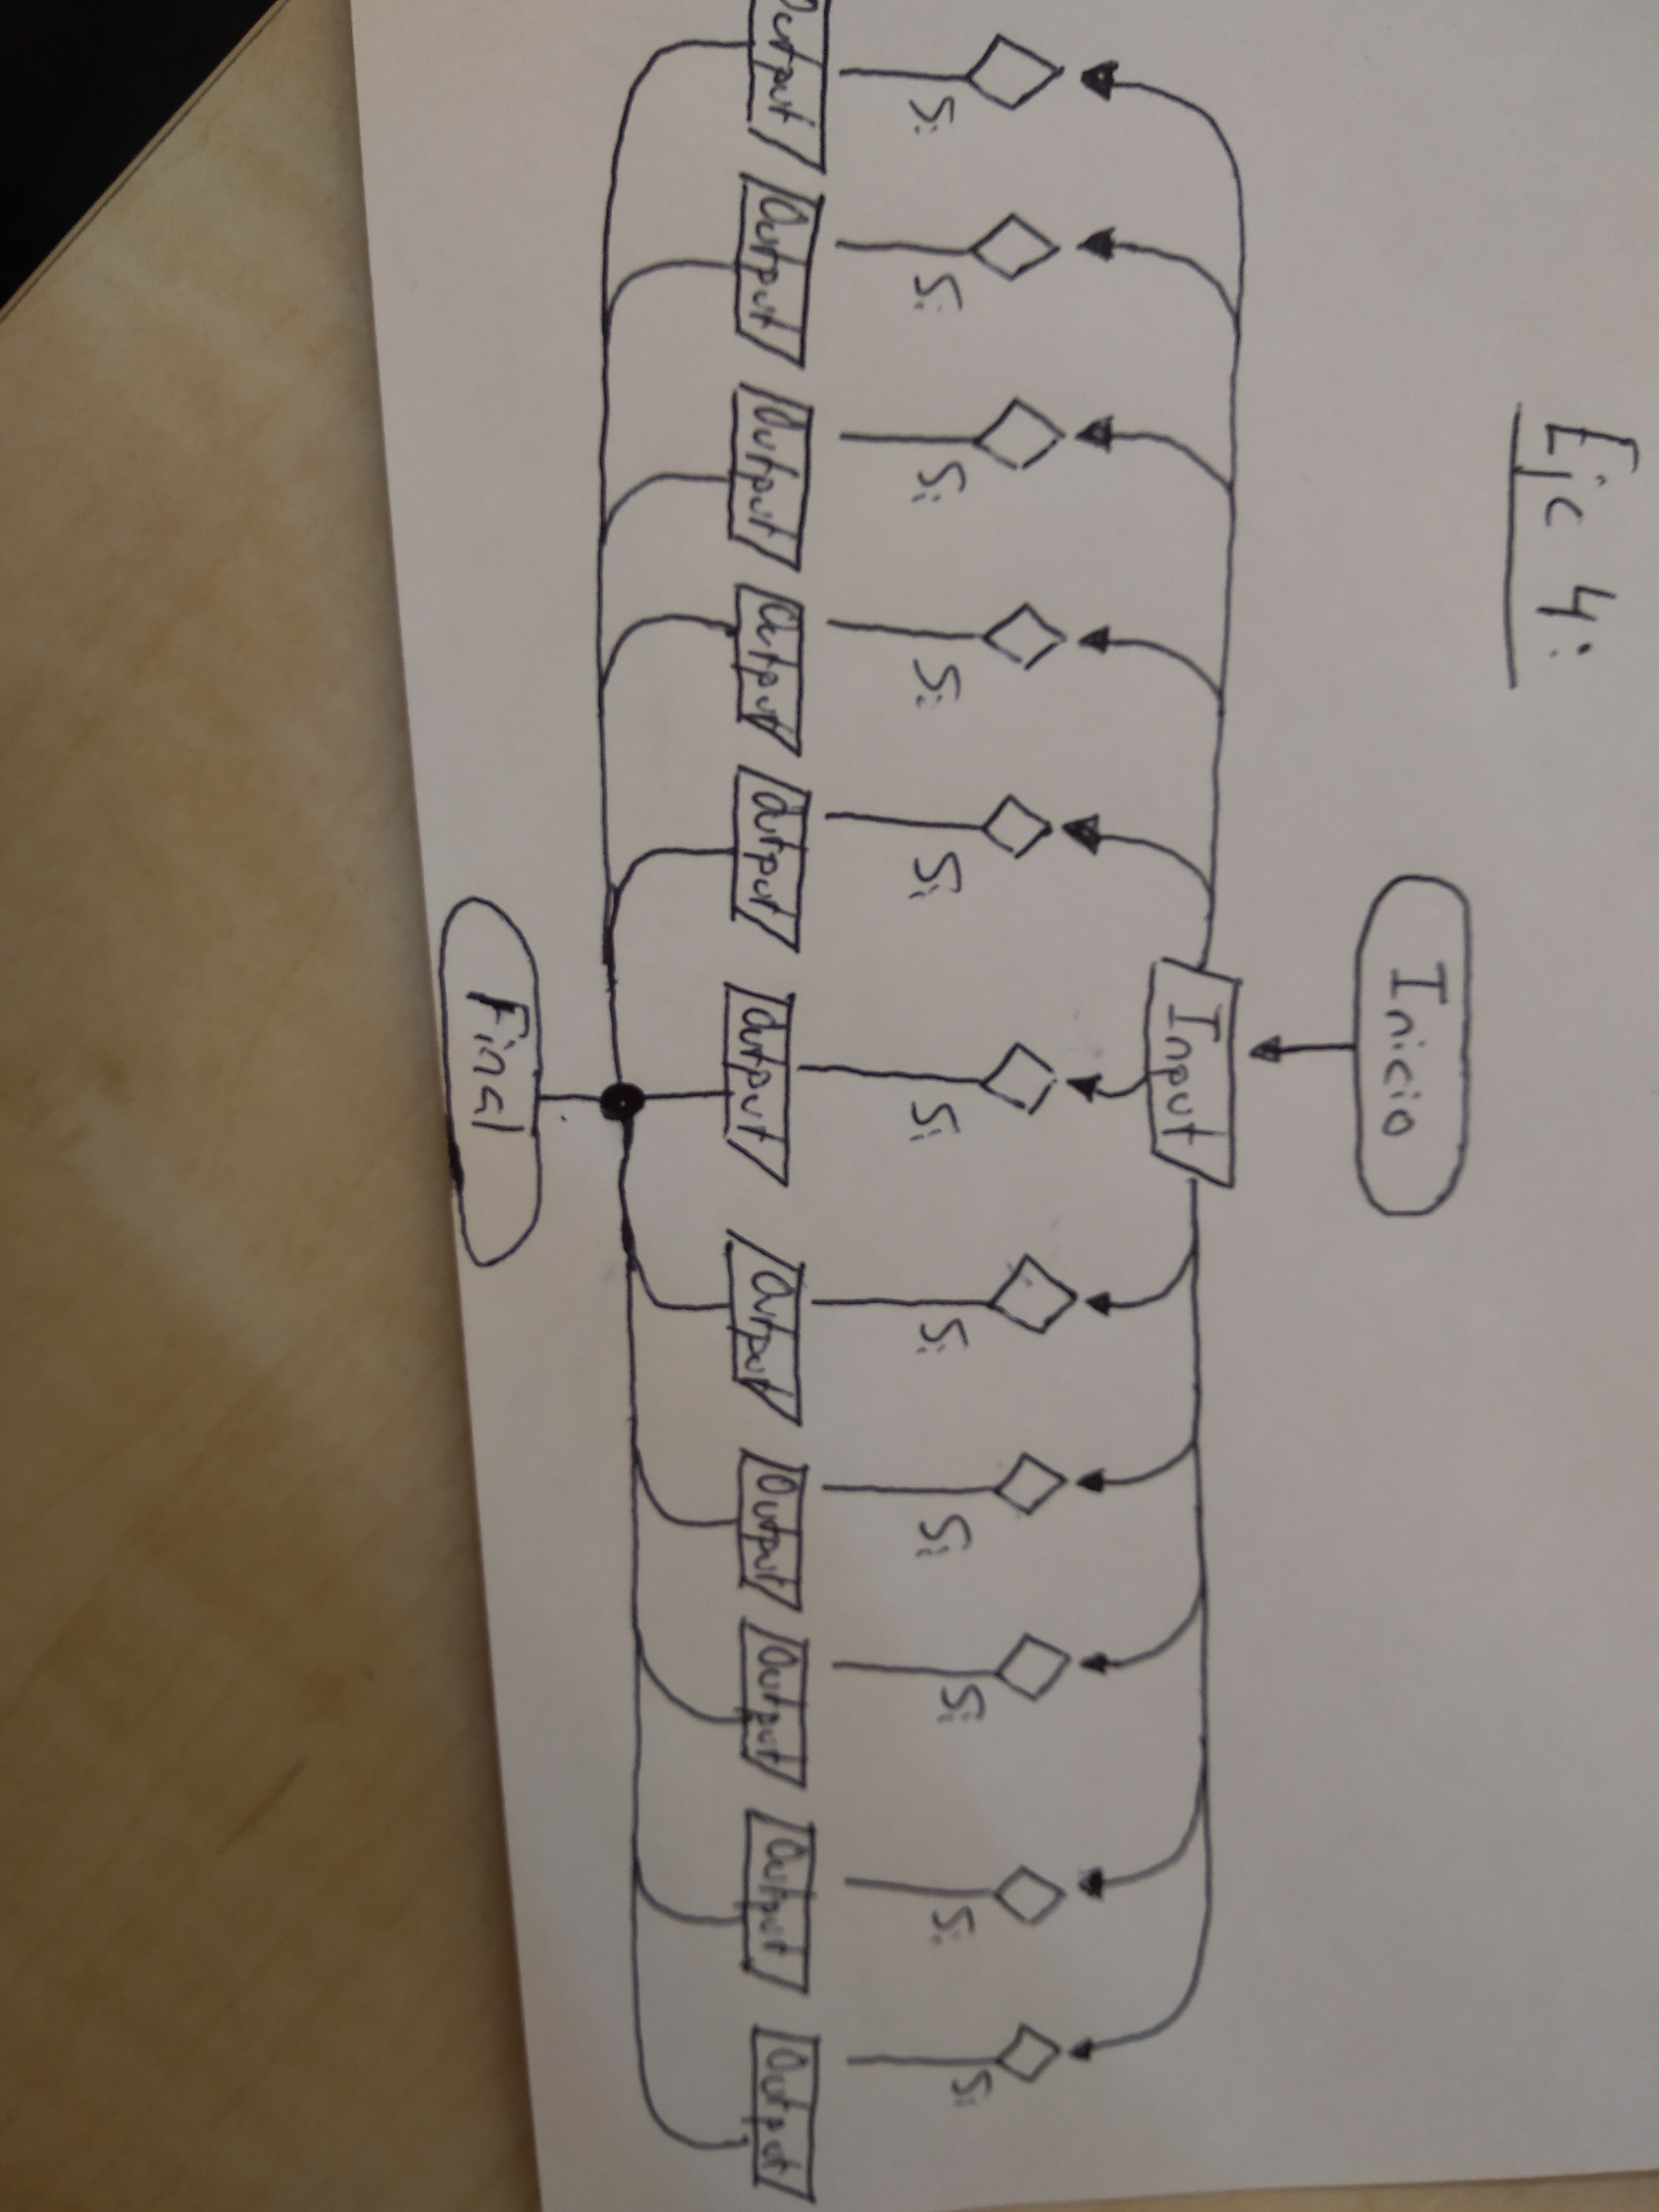 Ejc 4:
Inicio
Input
Si Si Si Si Si Si Si Si Si Si Si
Output Output Output Output Output Output Output Output Output Output Output
Final